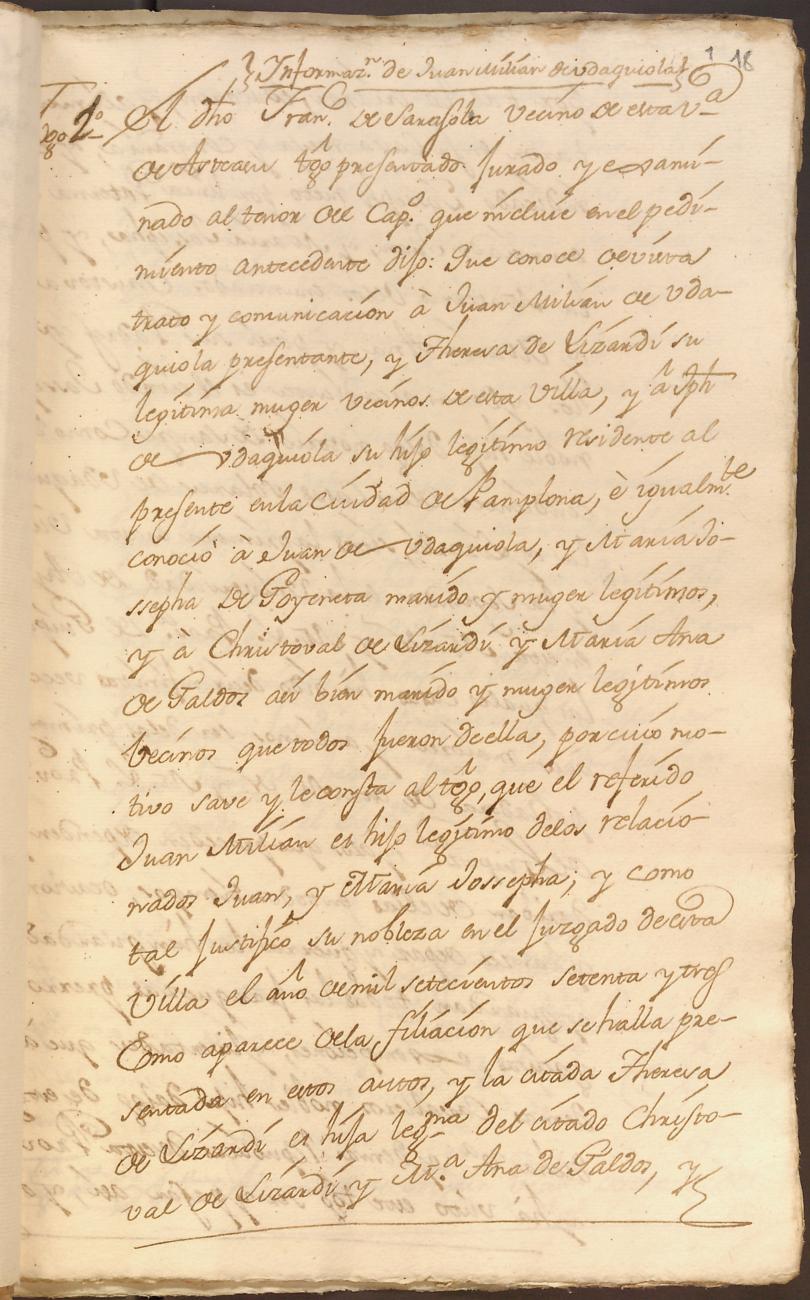 Informaz.n de Juan Milian de Vdaquiola
1 18
T
tgo 2o
El dho Fran.co de Sarasola vecino de esta V.a
de Asteasu tgo presentado jurado y exami-
nado al tenor del Cap.o que incluie en el pedi-
miento antecedente dijo: Que conoce de vista
trato y comunicacion à Juan Milian de Vda-
quiola presentante, y Theresa de Lizardi su
legitima muger vecinos de esta Villa, y a Jph
de Vdaquiola su hijo legitimo residente al
presente en la Ciudad de Pamplona, è igualm.te
conoció à Juan de Vdaquiola, y Maria Jo-
ssepha de Goyeneta marido y muger legitimos,
y à Christoval de Lizardi y Maria Ana
de Galdos asi bien marido y muger legitimos
vecinos que todos fueron de ella, por cuio mo-
tivo save y le consta al tgo, que el referido
Juan Milian es hijo legitimo de los relacio-
nados Juan, y Maria Jossepha; y como
tal justificó su nobleza en el juzgado de esta
Villa el año de mil setecientos setenta y tres
Como aparece de la filiacion que se halla pre-
sentada en estos autos, y la citada Theresa
de Lizardi es hija leg.ma del citado Christo-
val de Lizardi y M.a Ana de Galdos, y